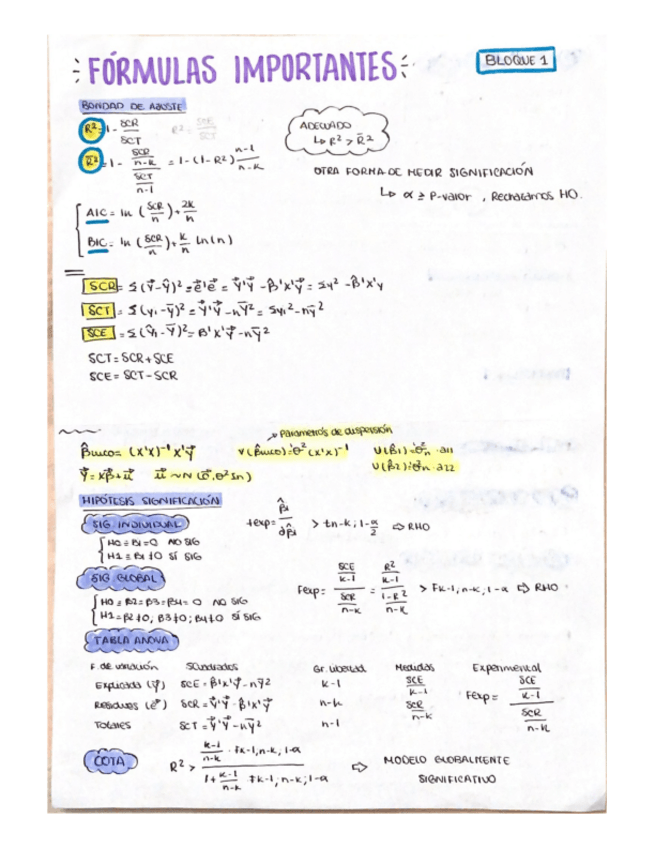 FÓRMULAS IMPORTANTES
BLOQUE 1
BONDAD DE AJUSTE
R² = 1 - SCR/SCT
R² = SCE/SCT
R̄² = 1 - (SCR/(n-k))/(SCT/(n-1)) = 1-(1-R²) (n-1)/(n-k)
ADECUADO
↳ R² > R̄²
OTRA FORMA DE MEDIR SIGNIFICACIÓN
↳ α ≥ P-valor , Rechazamos H0.
AIC = ln (SCR/n) + 2k/n
BIC = ln (SCR/n) + k/n ln(n)
SCR = Σ(Y-Ŷ)² = e'e = Y'Y - β̂'X'Y = Σy² - β̂'X'Y
SCT = Σ(yi-ȳ)² = Y'Y - nȲ² = Σyi² - nȳ²
SCE = Σ(Ŷi-Ȳ)² = β'X'Y - nȲ²
SCT = SCR + SCE
SCE = SCT - SCR
Parámetros de dispersión
β̂MCO = (X'X)⁻¹ X'Y
V(β̂MCO) = σ² (X'X)⁻¹
V(β̂1) = σ²n · a11
V(β̂2) = σ²n · a22
Y = Xβ + u
u ~ N (0, σ² In)
HIPÓTESIS SIGNIFICACIÓN
SIG INDIVIDUAL
H0 ≡ βi = 0 NO SIG
H1 ≡ βi ≠ 0 SÍ SIG
texp = β̂i/σ̂β̂i > tn-k; 1-α/2 ⇨ RH0
SIG GLOBAL
H0 ≡ β2 = β3 = β4 = 0 NO SIG
H1 = β2 ≠ 0, β3 ≠ 0; β4 ≠ 0 SÍ SIG
Fexp = (SCE/(k-1))/(SCR/(n-k)) = (R²/(k-1))/((1-R²)/(n-k)) > Fk-1, n-k, 1-α ⇨ RH0
TABLA ANOVA
F de variación SCuadrados Gr. libertad Medidas Experimental
Explicada (Ŷ) SCE = β'X'Y - nȲ² k-1 SCE/(k-1) Fexp = (SCE/(k-1))/(SCR/(n-k))
Residuos (e) SCR = Y'Y - β'X'Y n-k SCR/(n-k)
Totales SCT = Y'Y - nȲ² n-1
COTA
R² > ((k-1)/(n-k) · Fk-1, n-k; 1-α)/(1 + (k-1)/(n-k) · Fk-1; n-k; 1-α) ⇨ MODELO GLOBALMENTE
SIGNIFICATIVO